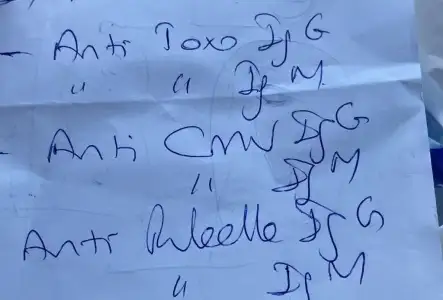 - Anti Toxo Ig G
" " Ig M
- Anti CMV Ig G
" Ig M
Anti Rubeolle Ig G
" Ig M